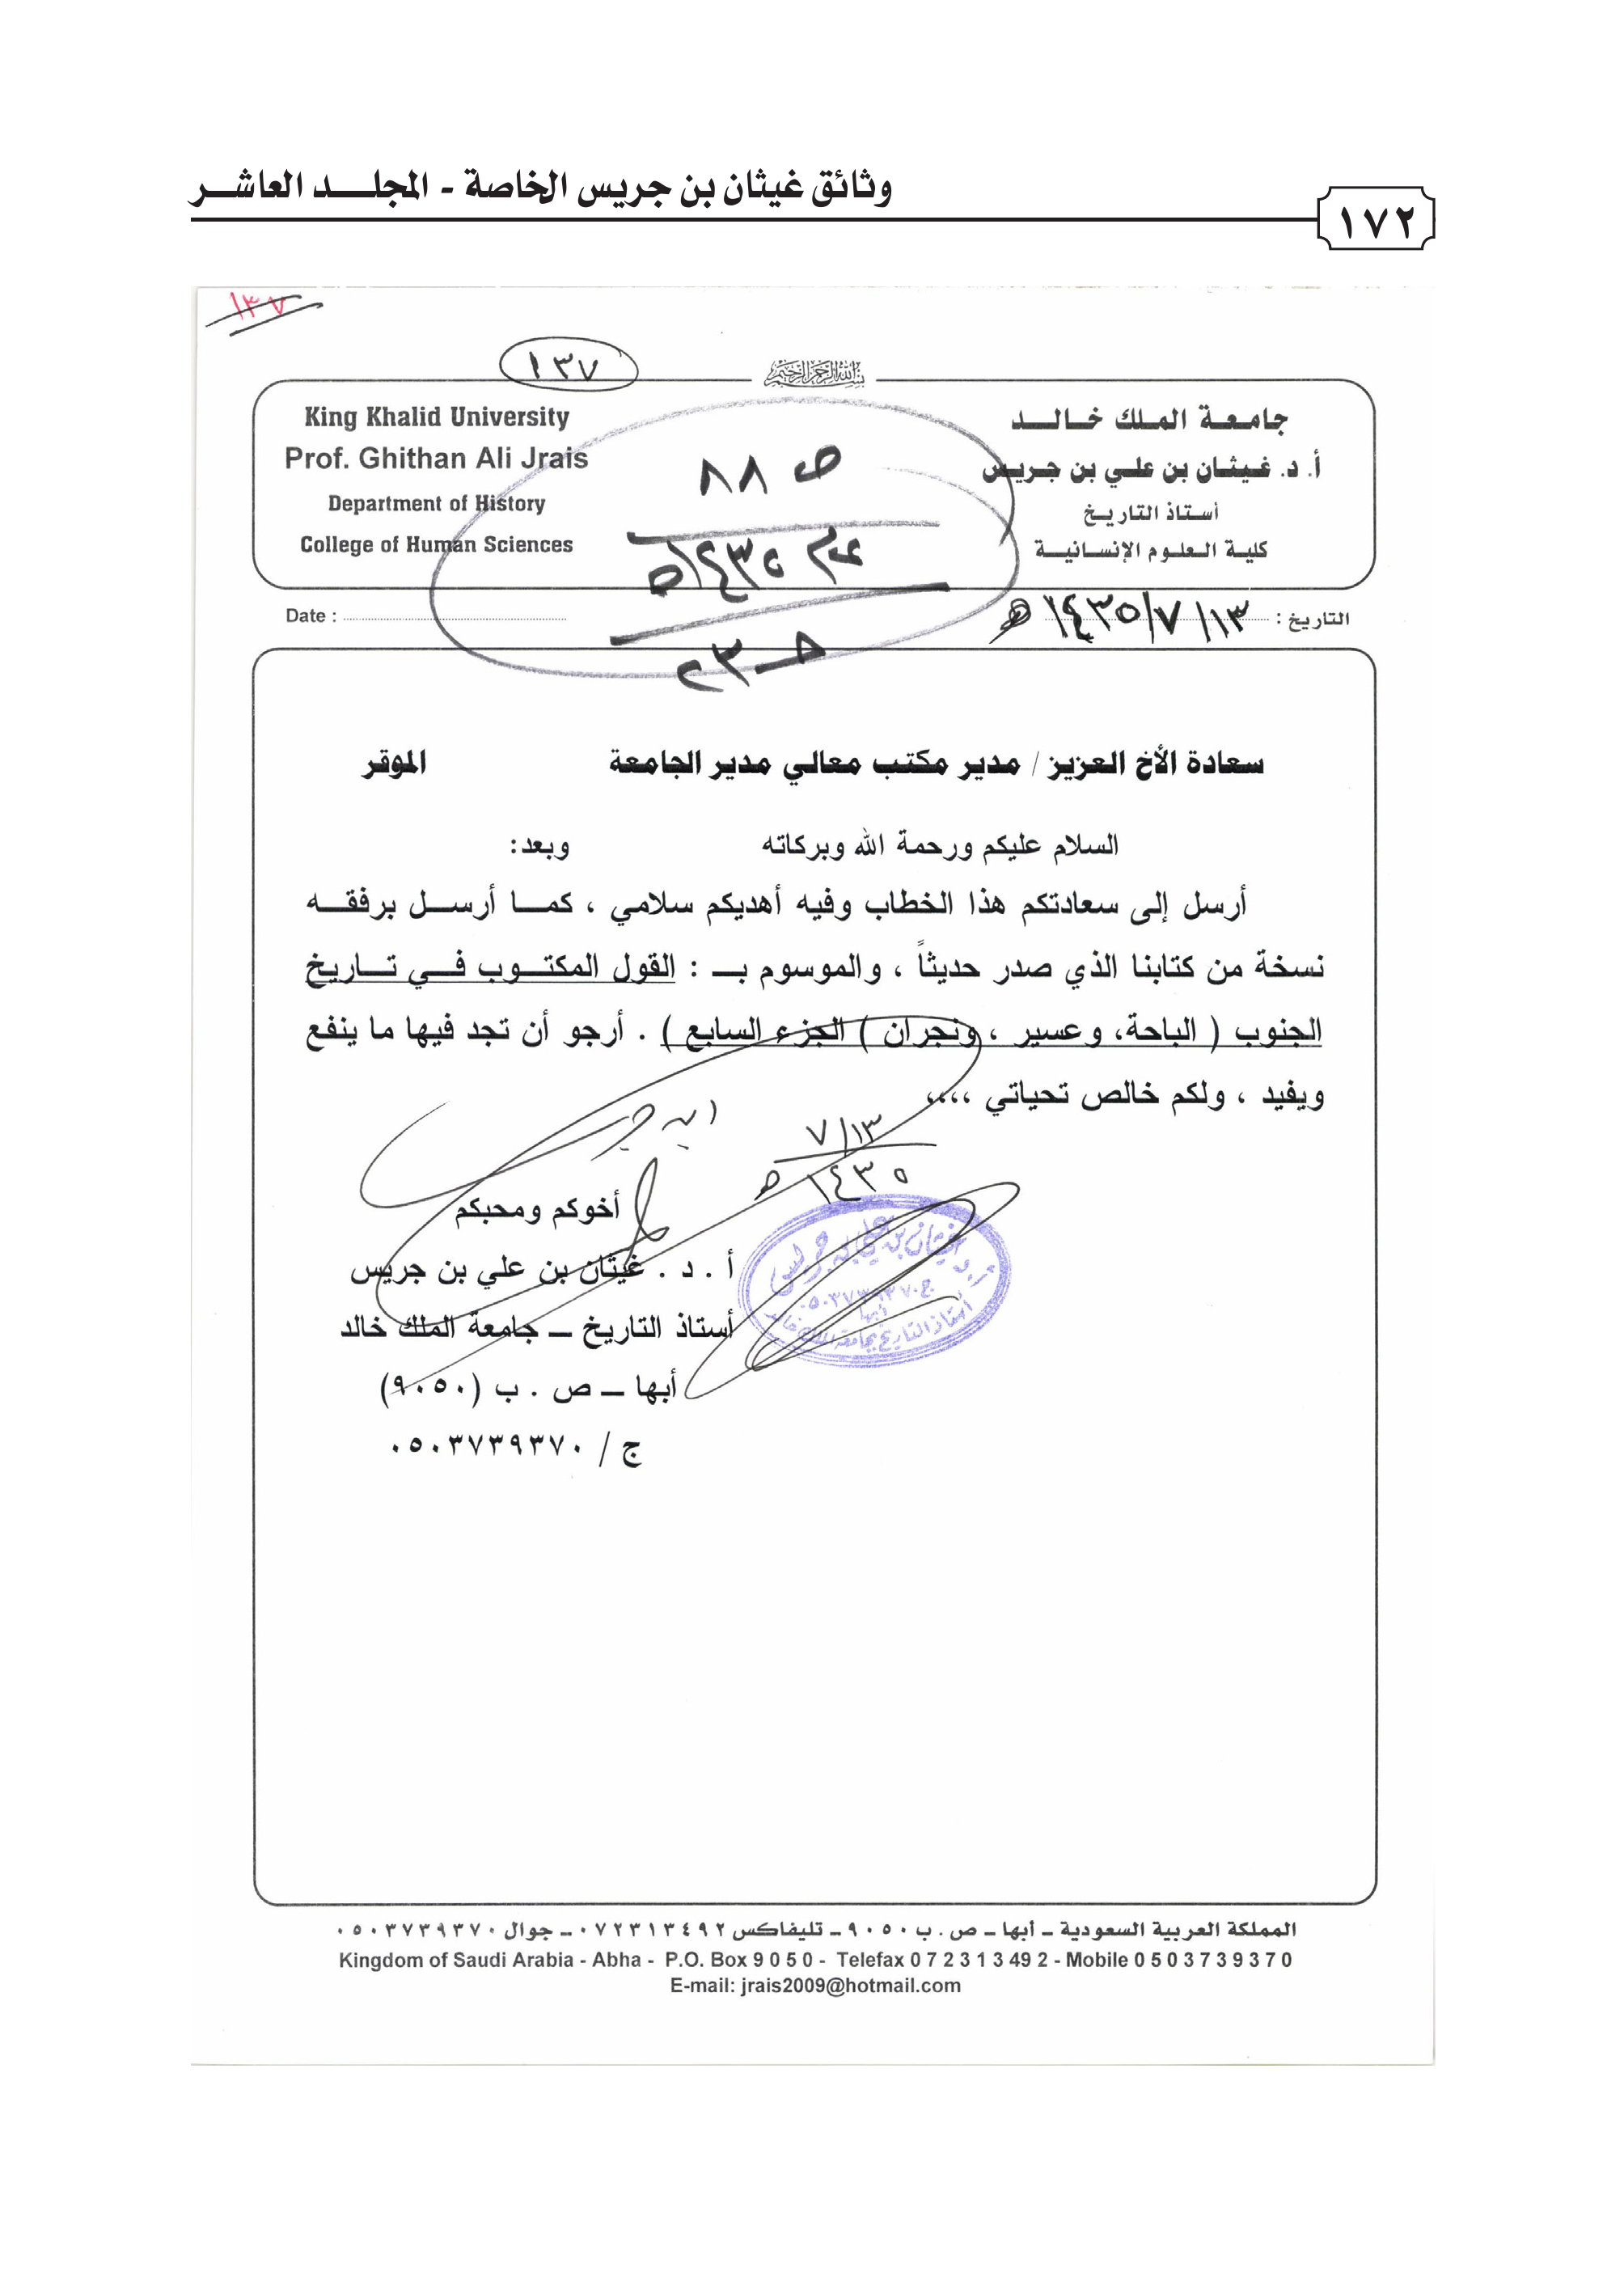 وثائق غيثان بن جريس الخاصة - المجلــد العاشــر
١٧٢
١٣٧
١٣٧
بسم الله الرحمن الرحيم
جامعة الملك خالد
أ. د. غيثان بن علي بن جريس
أستاذ التاريخ
كلية العلوم الإنسانية
King Khalid University
Prof. Ghithan Ali Jrais
Department of History
College of Human Sciences
ص ٨٨
١٤٣٥هـ
التاريخ : ١٤٣٥/٧/١٣ هـ
Date :
سعادة الأخ العزيز / مدير مكتب معالي مدير الجامعة الموقر
السلام عليكم ورحمة الله وبركاته وبعد:
أرسل إلى سعادتكم هذا الخطاب وفيه أهديكم سلامي ، كمـا أرسـل برفقـه
نسخة من كتابنا الذي صدر حديثاً ، والموسوم بـ : القول المكتـوب فـي تـاريخ
الجنوب ( الباحة، وعسير ، ونجران ) الجزء السابع ) . أرجو أن تجد فيها ما ينفع
ويفيد ، ولكم خالص تحياتي ،،،،
١٣/٧
١٤٣٥ هـ
أخوكم ومحبكم
أ . د . غيثان بن علي بن جريس
أستاذ التاريخ ــ جامعة الملك خالد
أبها ــ ص . ب (٩٠٥٠)
ج / ٠٥٠٣٧٣٩٣٧٠
أ.د غيثان بن علي بن جريس
ج ٠٥٠٣٧٣٩٣٧٠
أبها
أستاذ التاريخ بجامعة الملك خالد
المملكة العربية السعودية ــ أبها ــ ص . ب ٩٠٥٠ ــ تليفاكس ٠٧٢٣١٣٤٩٢ ــ جوال ٠٥٠٣٧٣٩٣٧٠
Kingdom of Saudi Arabia - Abha - P.O. Box 9 0 5 0 - Telefax 0 7 2 3 1 3 49 2 - Mobile 0 5 0 3 7 3 9 3 7 0
E-mail: jrais2009@hotmail.com